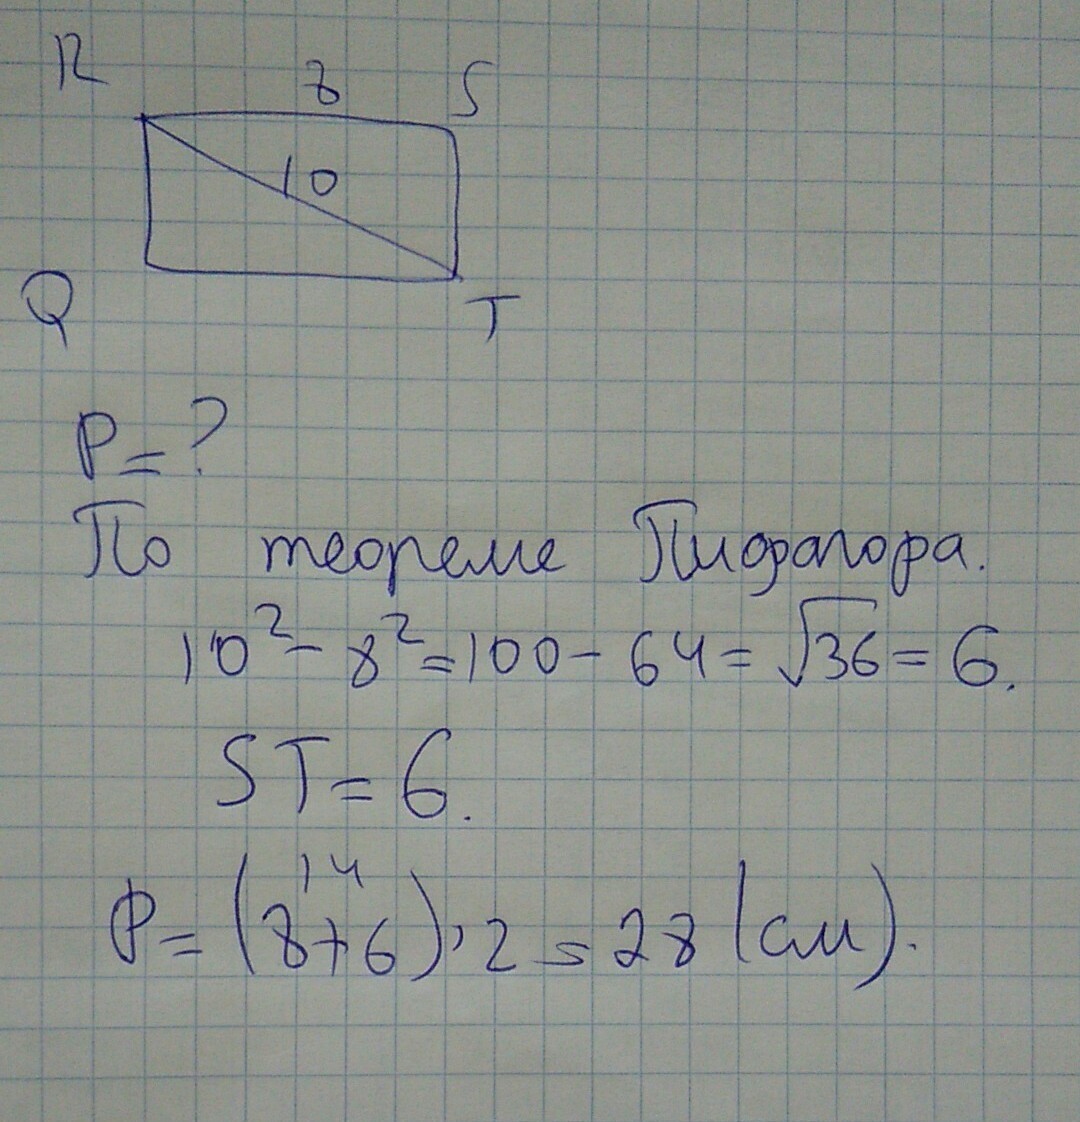 R 8 S
10
Q T
P = ?
По теореме Пифагора.
10² - 8² = 100 - 64 = √36 = 6.
ST = 6.
14
P = (8+6)·2 = 28 (см).